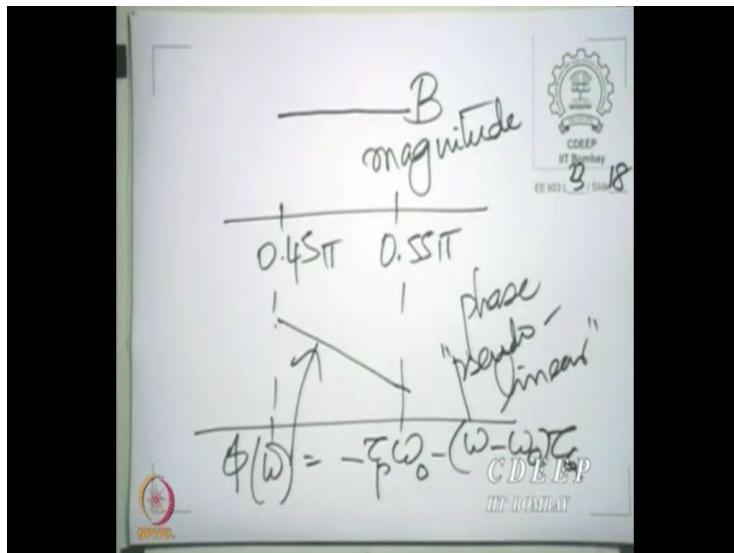 B
magnitude
CDEEP
IIT Bombay
EE 603 L 3 / Slide 18
0.45π 0.55π
phase
"pseudo-
linear"
ϕ(ω) = -τpω₀-(ω-ω₀)τ
CDEEP
IIT BOMBAY
NPTEL